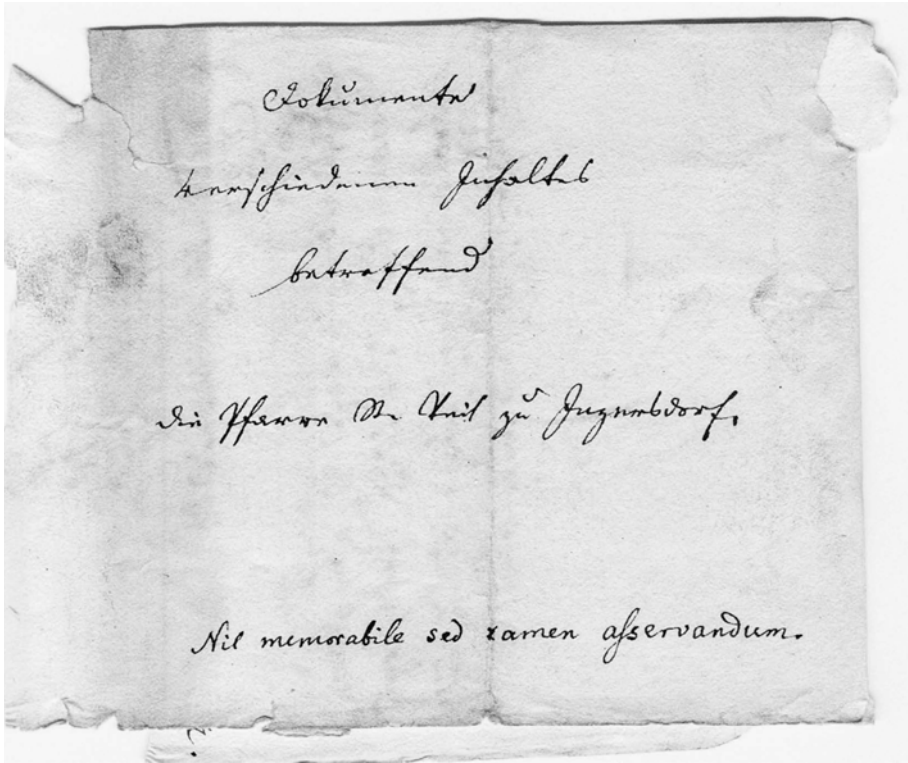 Dokumente
verschiedenen Inhaltes
betreffend
die Pfarre St. Veit zu Inzersdorf.
Nil memorabile sed tamen asservandum.